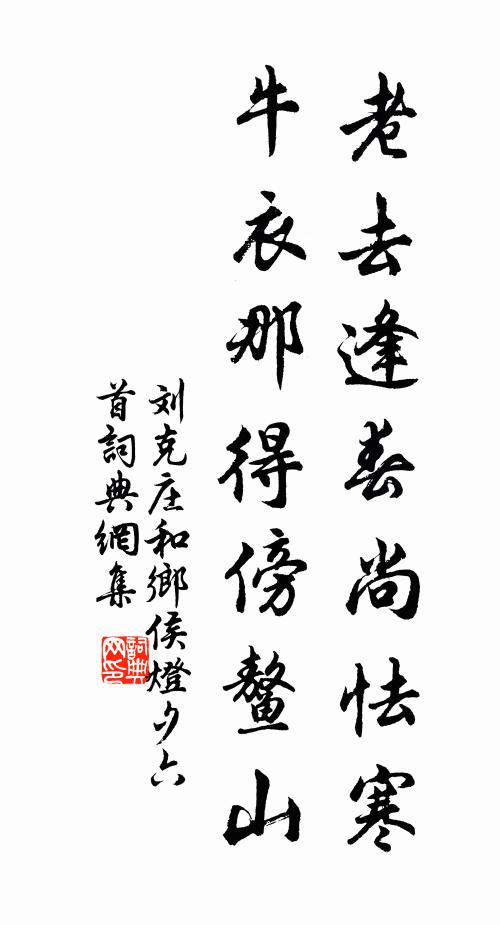 老去逢春尚怯寒
牛衣那得傍鰲山
刘克庄和鄉侯燈夕六
首詞典網集
詞典
网印